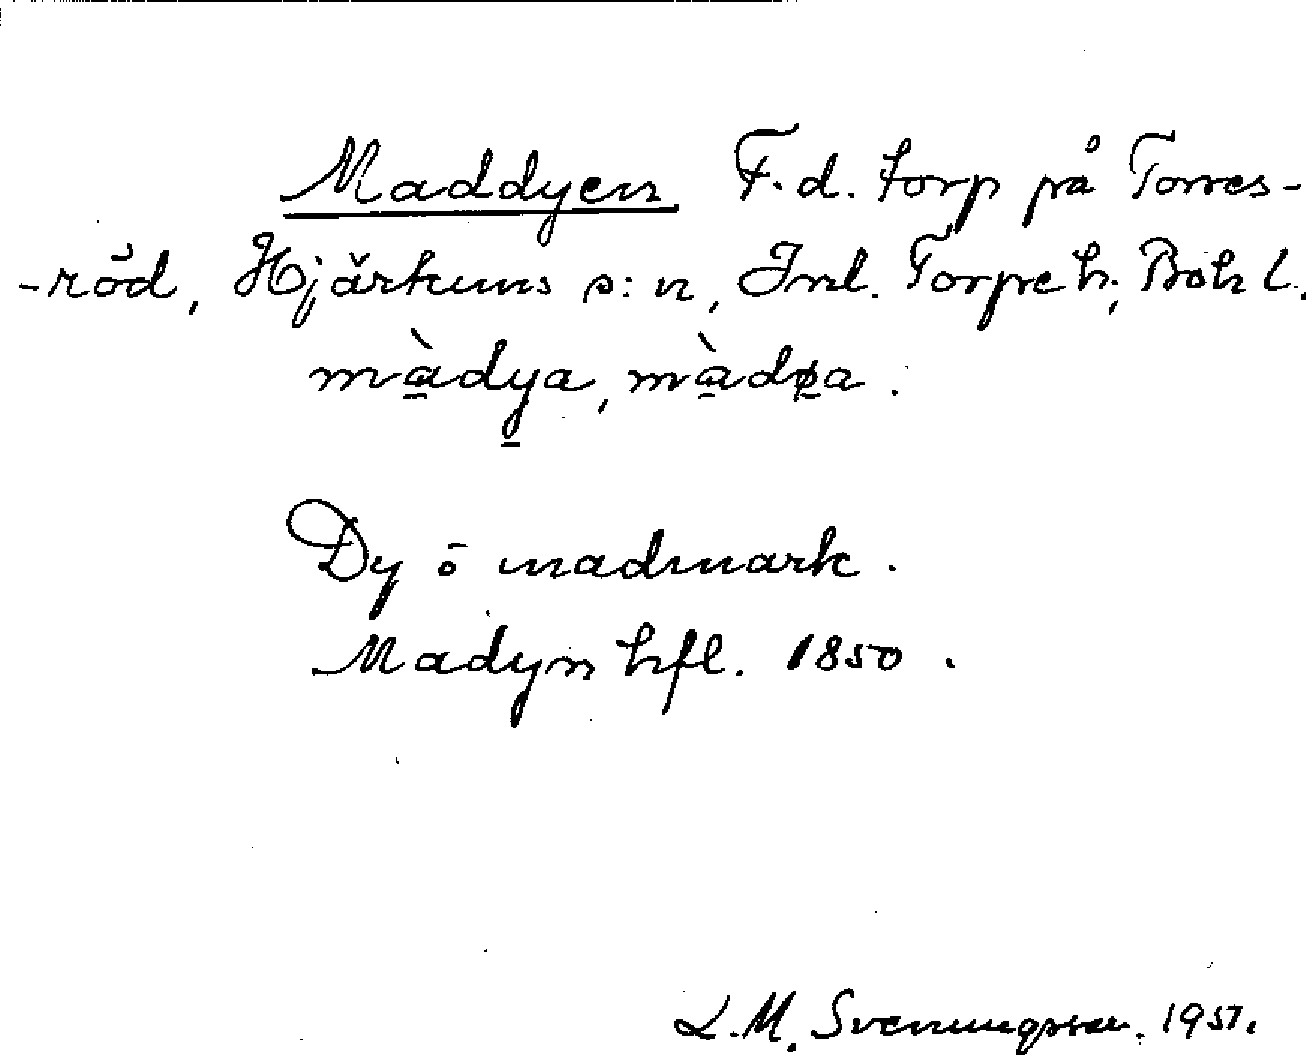 Maddyen F. d. torp på Torres-
-röd, Hjärtums s:n, Inl. Torpe h., Boh l.
màdya, màdøa.
Dy ō madmark.
Madyn hfl. 1850.
L. M. Svenungsson. 1957.